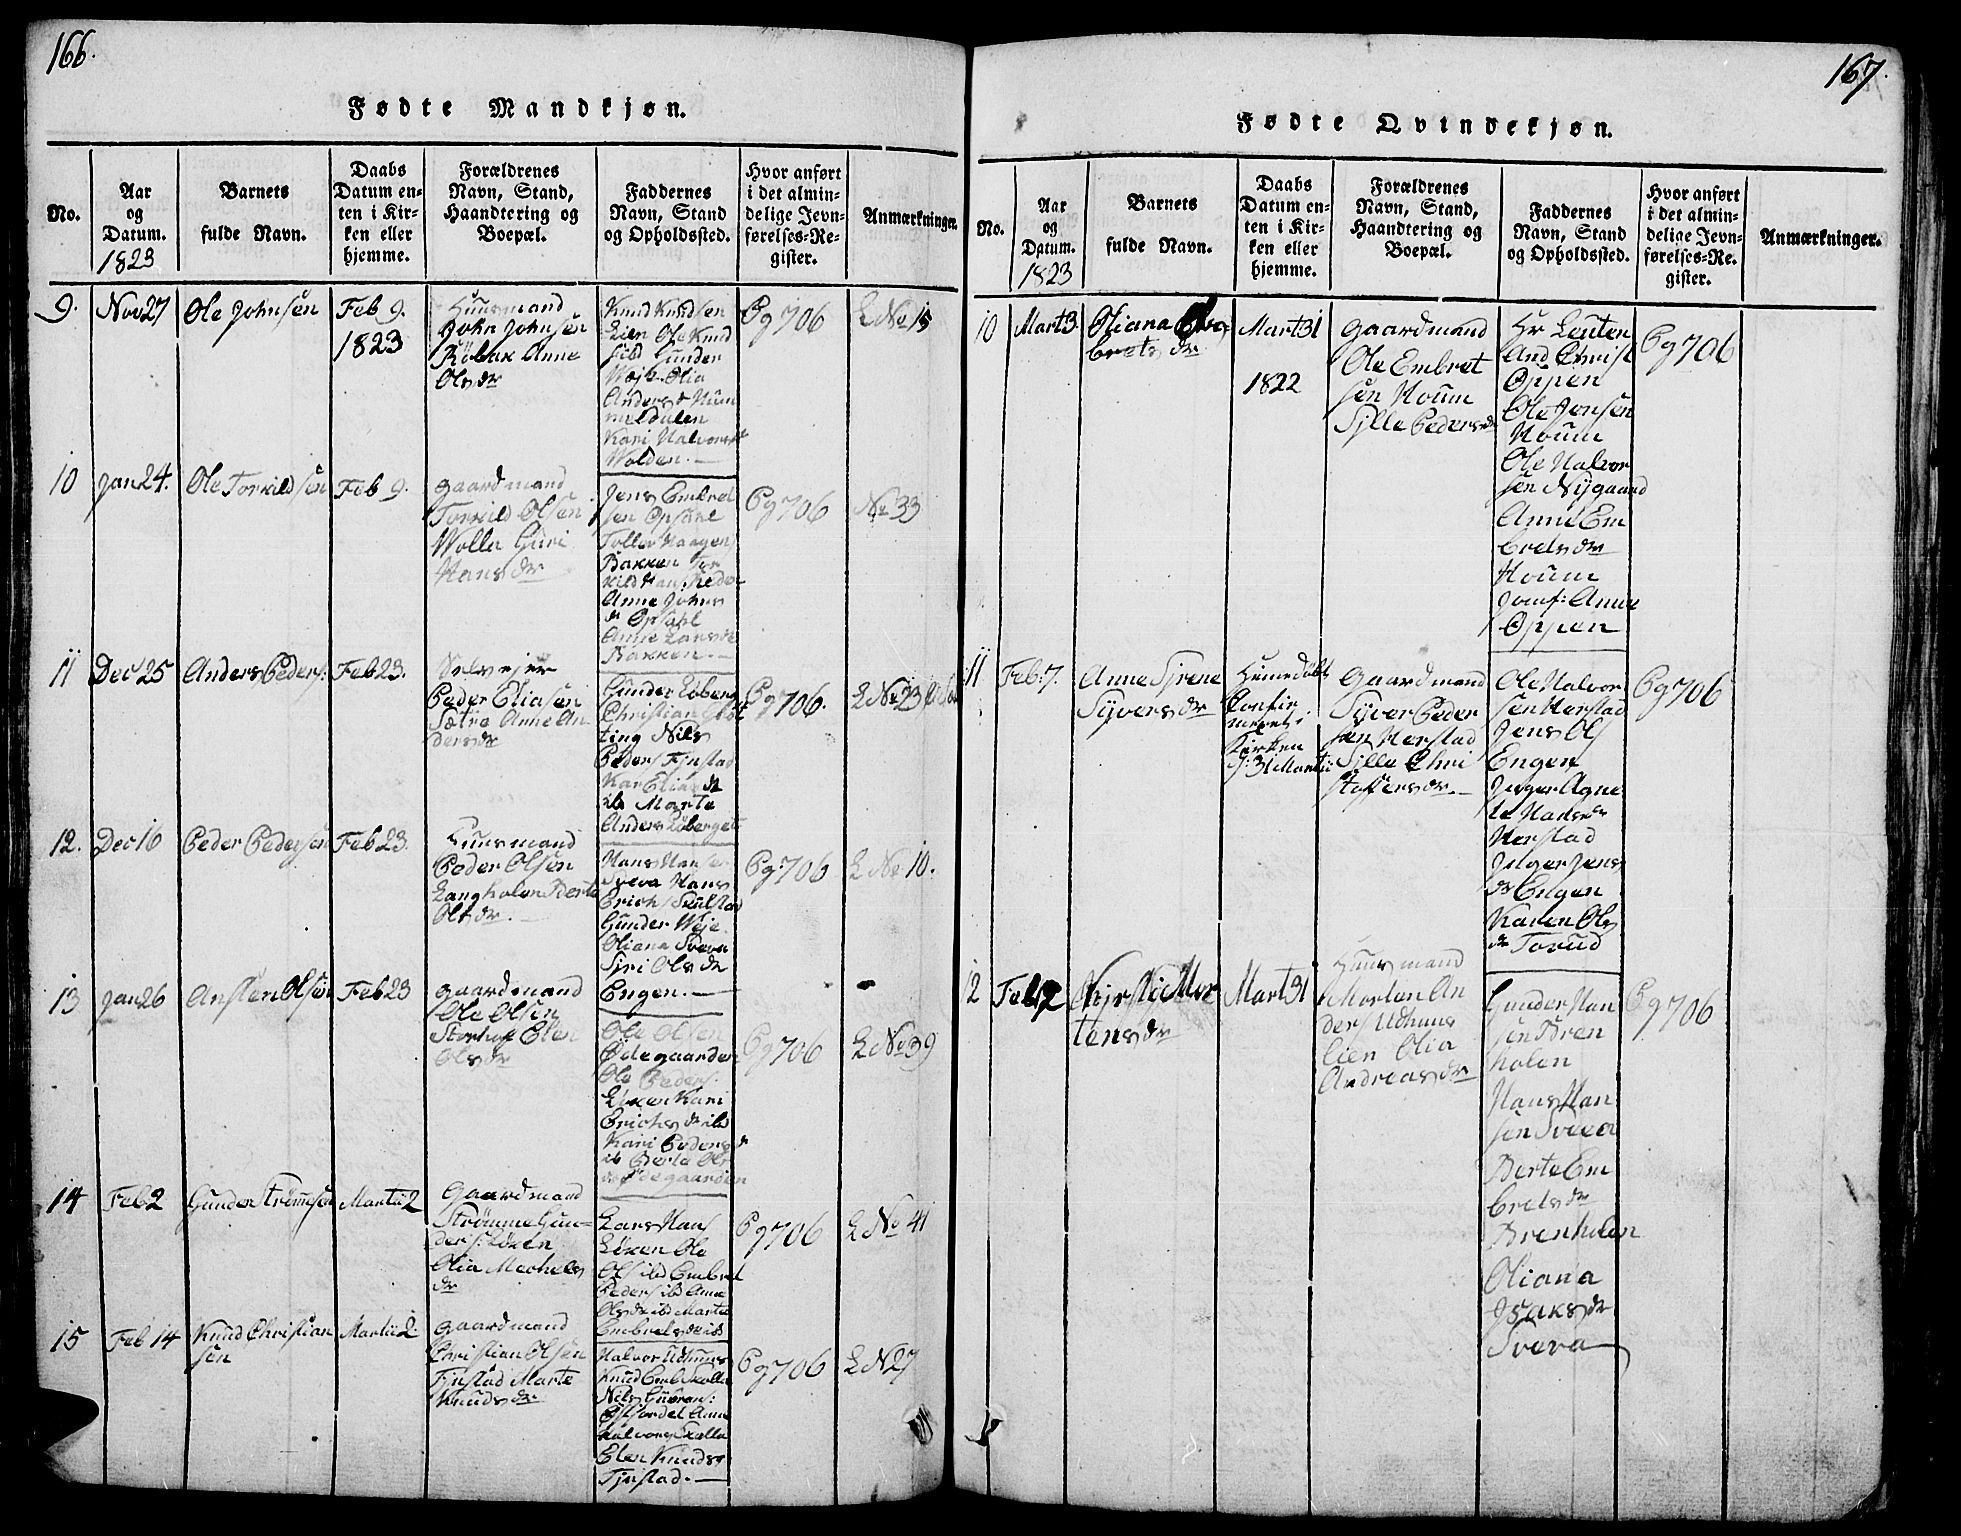 166.
Fødte Mandkjøn.
No.
Aar
og
Datum.
1823
Barnets
fulde Navn.
Daabs
Datum en-
ten i Kir-
ken eller
hjemme.
Forældrenes
Navn, Stand,
Haandtering og
Boepæl.
Faddernes
Navn, Stand
og Opholdssted.
Hvor anført
i det almin-
delige Jevn-
førelses-Re-
gister.
Anmærkninger.
9.
Nov 27
Ole Johnsen
Feb 9.
1823
Huusmand
John Johnsen
Anne
Olsdr
Knud Knudsen
Lien Ole Knud
Gunder
Olia
Anders
Kari Halvorsd
Wolden.
Pg 706
L No 15
10
Jan 24.
Ole Torkildsen
Feb 9.
Gaardmand
Torkild Olsen
Wolla Guri
Hansdr
Jens Embret
sen Opsahl
Haagen
Bakken Tor
kild
Anne Johns
dr Opsahl
Anne Larsdr
Bakken.
Pg 706
No 33
11
Dec 25
Anders Peders:
Feb 23.
Selvejer
Peder Eliasen
Sætre Anne An
dersdr
Gunder Løberg
Christian
ting Nils
Peders Fjnstad
Kari Eliasdr
ib Marte
Anders Løberget
Pg 706.
L No 23
12.
Dec 16
Peder Pedersen
Feb 23.
Huusmand
Peder Olsen
Langholen Berte
Olsdr.
Hans Hanse
Sveva Hans
Erichs Skulstad
Gunder Weje
Oliana Sveva
Siri Olsdr
Engen.
Pg 706
L No 10.
13
Jan 26
Ansten Olsen
Feb 23
Gaardmand
Ole Olsen
Elen
Olsdr
Ole Olsen
Ødegaarden
Ole Peders:
Løken Kari
Erichsdr ibd
Kari Pedersd
ib Berte Ols
dr Ødegaarden
Pg 706
L No 39
14
Feb 2
Gunder Strømesen
Martii 2
Gaardmand
Strømme Gun-
ders: Løken
Olia Michels
dr
Lars Hans
Løken Ole
Ols ibd Embret
Peders ibd Anne
Olsdr ibd Marte
Embretsdr ib
Pg 706
L No 41
15
Feb 14
Knud Christian
sen
Martii 2.
Gaardmand
Christian Olsen
Fjnstad Marte
Knudsdr
Halvor
Knud Emb
Nils
Anne
Halvors
Elen Knudsr
Fjnstad.
Pg 706
L N 27
167.
Fødte Qvindekjøn.
No.
Aar
og
Datum.
1823
Barnets
fulde Navn.
Daabs
Datum en-
ten i Kir-
ken eller
hjemme.
Forældrenes
Navn, Stand,
Haandtering og
Boepæl.
Faddernes
Navn, Stand
og Opholdssted.
Hvor anført
i det almin-
delige Jevn-
førelses-Re-
gister.
Anmærkninger.
10
Mart 3.
Oliana
bretsdr
Mart 31
1822
Gaardmand
Ole Embret
sen Houm
Sille Pedersdr
Hr Leuten
And Christ
Oppen
Ole Jensen
Houm
Ole Halvor
sen Nygaard
Anne Em
bretsdr
Houm
Jomf: Anne
Oppen
Pg 706
11
Feb: 7.
Anne Sirene
Syversdr
Hiemedøbt
Confir
meret i
Kirken
d: 31 Martii
Gaardmand
Syver Peder
sen Herstad
Sille Chri
stoffersdr.
Ole Halvor
sen Herstad
Jens Ols
Engen
Inger Agne
te Hansdr
Herstad
Inger Jens
dr Engen
Karen Ols
dr Torud
Pg 706
12
Feb 12
Kirsti Mor
tensdr
Mart 31
Huusmand
Morten An
ders Udhuus
Eien Olia
Andreasdr
Gunder Han
sen Bren
holen
Hans Han
sen Sveva
Berte Em
bretsdr
Brenholen
Oliana
Isaksdr
Sveva
Pg 706